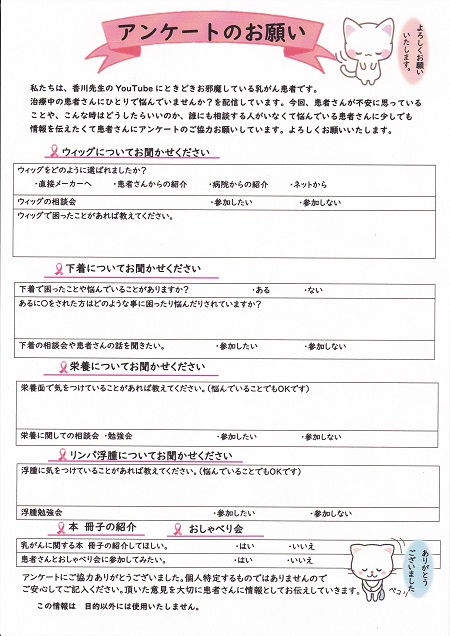 アンケートのお願い
よろしくお願い
いたします。
私たちは、香川先生のYouTubeにときどきお邪魔している乳がん患者です。
治療中の患者さんにひとりで悩んでいませんか？を配信しています。今回、患者さんが不安に思っている
ことや、こんな時はどうしたらいいのか、誰にも相談する人がいなくて悩んでいる患者さんに少しでも
情報を伝えたくて患者さんにアンケートのご協力お願いしています。よろしくお願いいたします。
ウィッグについてお聞かせください
ウィッグをどのように選ばれましたか？
・直接メーカーへ ・患者さんからの紹介 ・病院からの紹介 ・ネットから
ウィッグの相談会 ・参加したい ・参加しない
ウィッグで困ったことがあれば教えてください。
下着についてお聞かせください
下着で困ったことや悩んでいることがありますか？ ・ある ・ない
あるに〇をされた方はどのような事に困ったり悩んだりされていますか？
下着の相談会や患者さんの話を聞きたい。 ・参加したい ・参加しない
栄養についてお聞かせください
栄養面で気をつけていることがあれば教えてください。（悩んでいることでもOKです）
栄養に関しての相談会・勉強会 ・参加したい ・参加しない
リンパ浮腫についてお聞かせください
浮腫に気をつけていることがあれば教えてください。（悩んでいることでもOKです）
浮腫勉強会 ・参加したい ・参加しない
本 冊子の紹介 おしゃべり会
乳がんに関する本 冊子の紹介してほしい。 ・はい ・いいえ
患者さんとおしゃべり会に参加してみたい。 ・はい ・いいえ
ありがとう
ございました
ペコリ
アンケートにご協力ありがとうございました。個人特定するものではありませんので
ご安心してご記入ください。頂いた意見を大切に患者さんに情報としてお伝えしていきます。
この情報は 目的以外には使用いたしません。